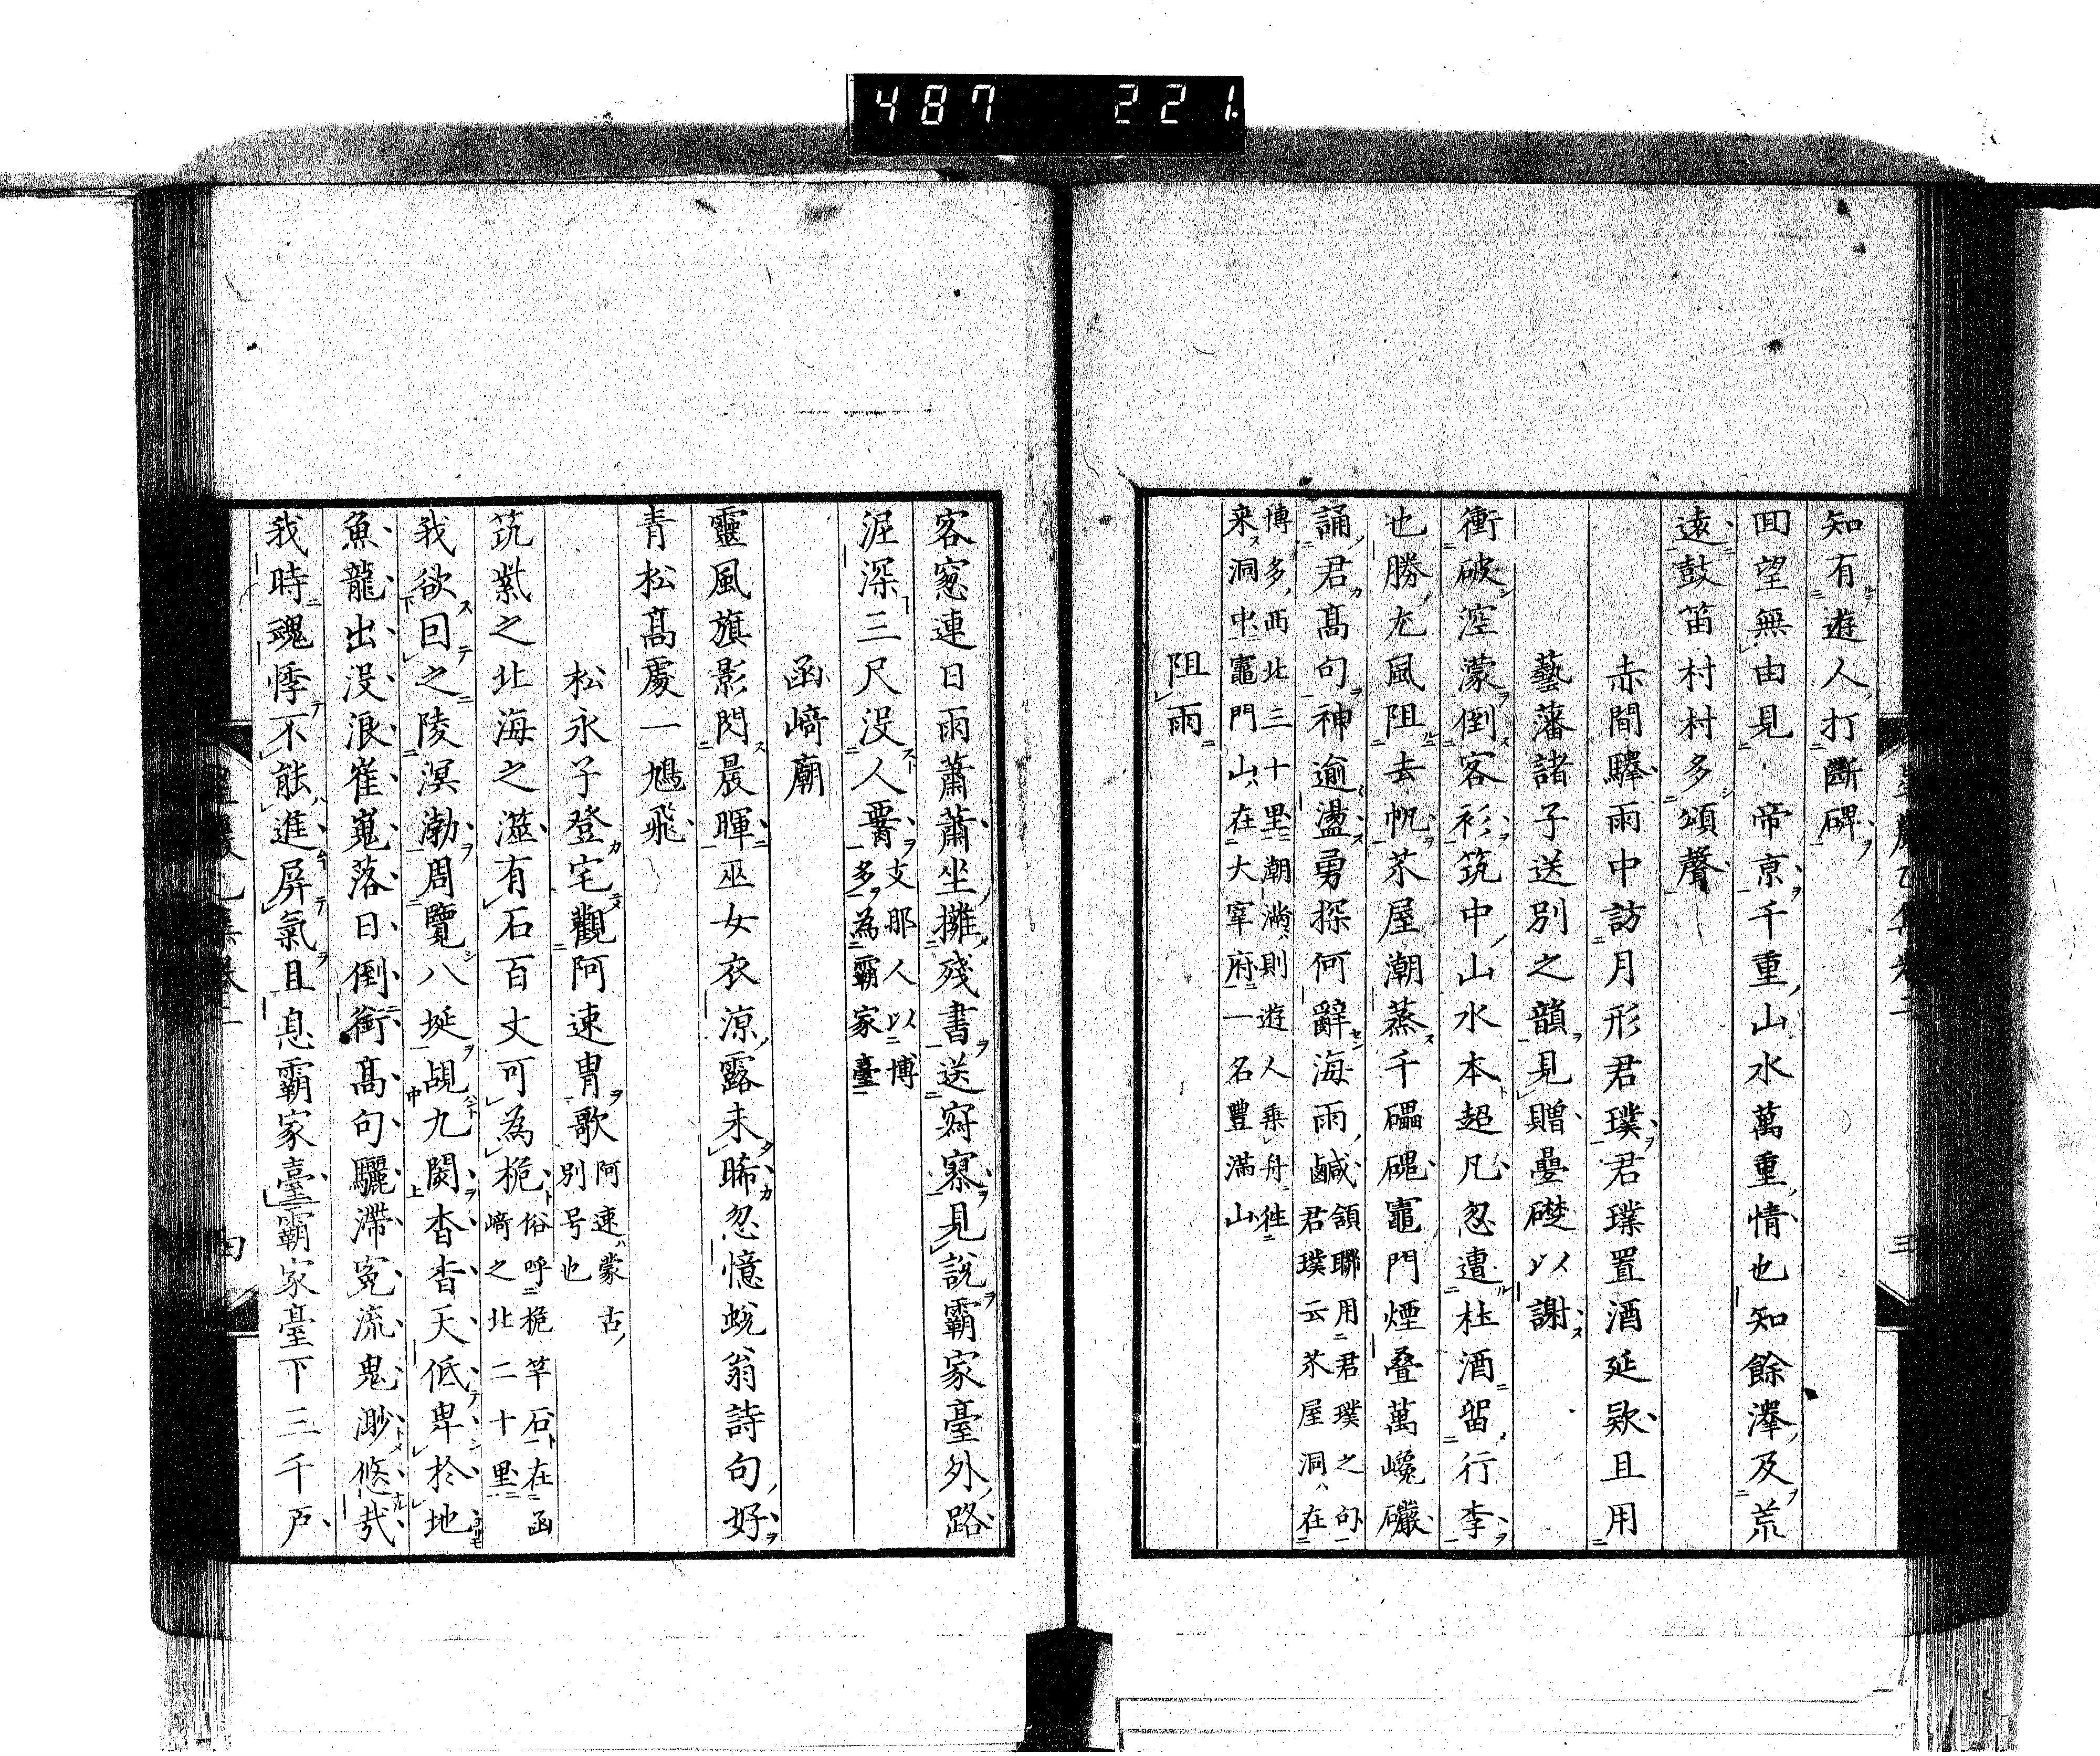 487 221.
知有遊人打斷碑
回望無由見帝京千重山水萬重情也知餘澤及荒
遠鼓笛村村多頌聲
赤間驛雨中訪月形君璞君璞置酒延欵且用
藝藩諸子送別之韻見贈疊礎以謝
衝破涳濛倒客衫筑中山水本超凡忽遭杜酒留行李
也勝尤風阻去帆芥屋潮蒸千礧磈竈門煙疊萬巉巖
誦君高句神逾盪勇探何辭海雨鹹頷聯用君璞之句
君璞云芥屋洞在
博多西北三十里潮滿則遊人乘舟往
来洞中竈門山在大宰府一名豐滿山
阻雨
客窓連日雨蕭蕭坐擁殘書送寂寥見說霸家臺外路
泥深三尺没人腰支那人以博
多為霸家臺
函﨑廟
靈風旗影閃晨暉巫女衣涼露未晞忽憶蛻翁詩句好
青松高處一鳩飛
松永子登宅觀阿速冑歌阿速蒙古
別号也
筑紫之北海之澨有石百丈可為桅俗呼桅竿石在函
﨑之北二十里
我欲回之陵溟渤周覽八埏覘九閡杳杳天低卑於地
魚龍出没浪崔嵬落日倒銜高句驪滯寃流鬼渺悠哉
我時魂悸不能進屏氣且息霸家臺霸家臺下三千戸